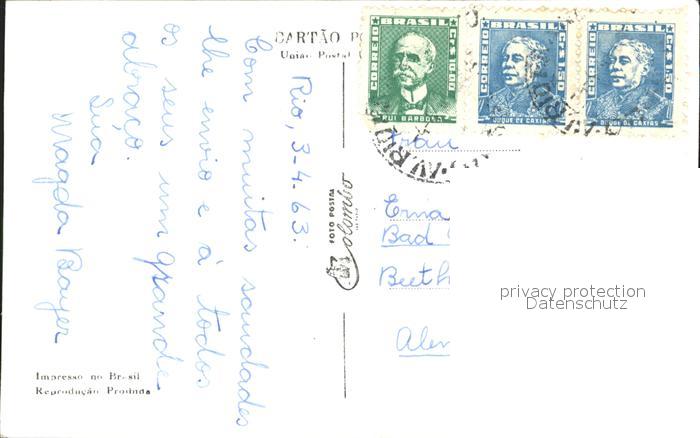 CARTÃO PO
União Postal
Rio, 3-4.63.
Com muitas saudades
lhe envio e à todos
os seus um grande
abraço.
Sua
Magda Bayer
Impresso no Brasil
Reprodução Proibida
FOTO POSTAL
Colombo
CORREIO
BRASIL
CR$ 10.00
RUI BARBOSA
CORREIO
BRASIL
CR$ 1,50
DUQUE DE CAXIAS
CORREIO
BRASIL
CR$ 1,50
DUQUE DE CAXIAS
Frau
Erna
Bad
Beeth
Alem
privacy protection
Datenschutz